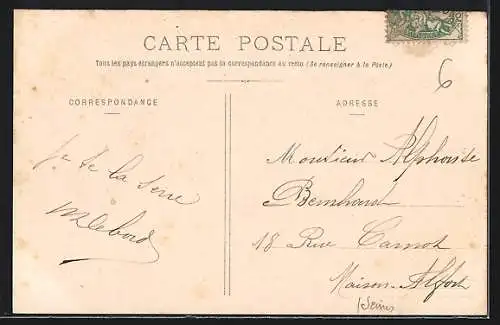 CARTE POSTALE
Tous les pays étrangers n'acceptent pas la correspondance au recto (Se renseigner à la Poste)
6
CORRESPONDANCE
ADRESSE
de la
Monsieur Alphonse
Bernhard
18 Rue Carnot
Maison-Alfort
(Seine